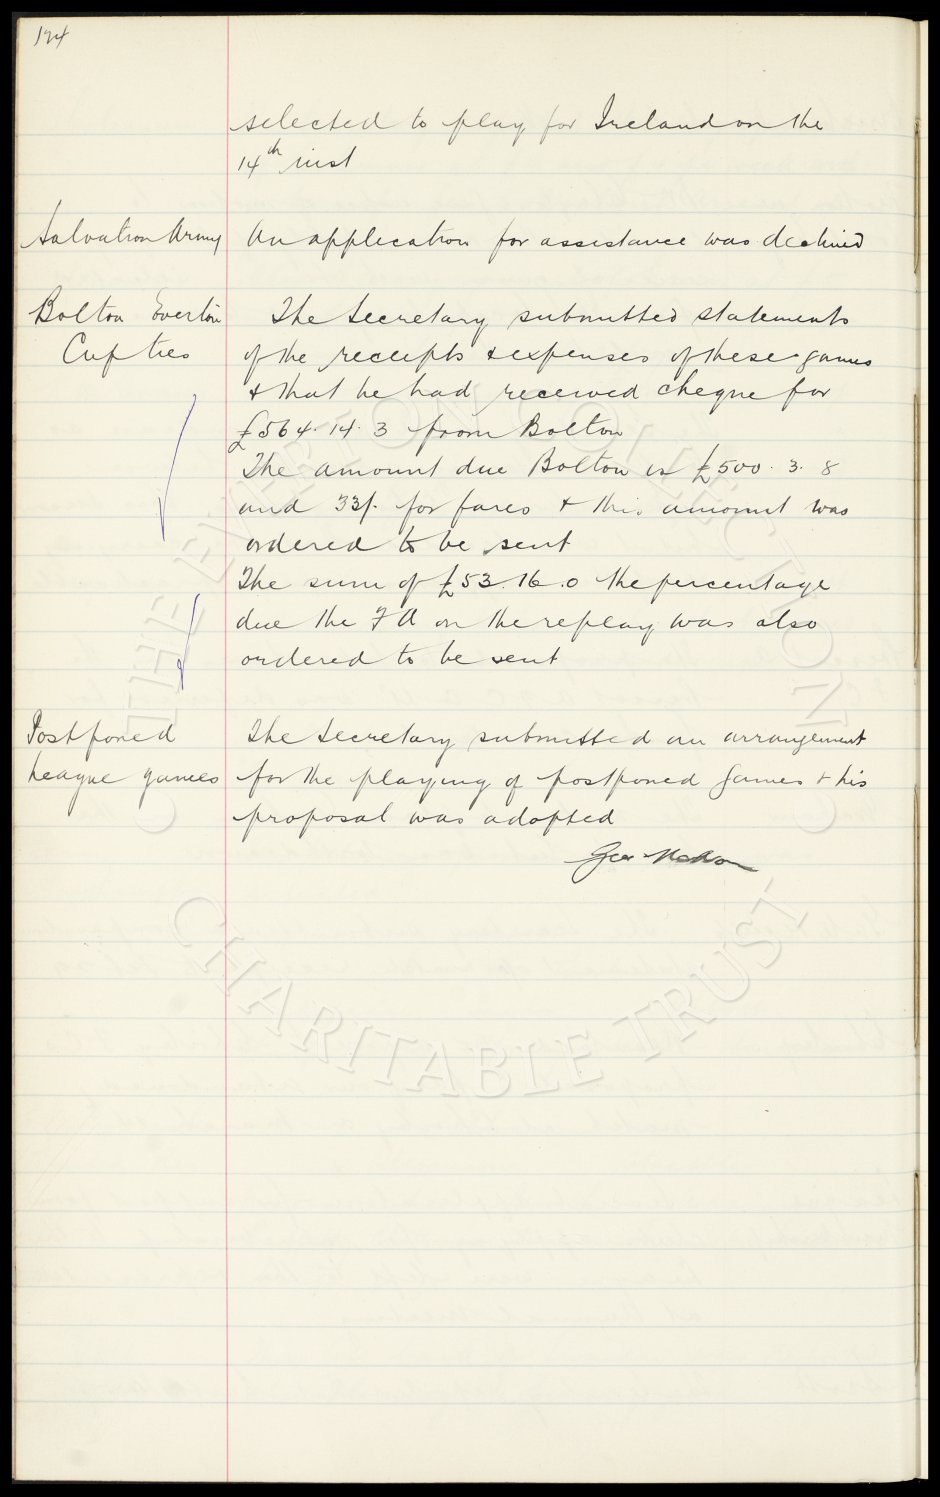 selected to play for Ireland on the
14th inst
Salvation Army An application for assistance was declined
Bolton Everton The Secretary submitted statements
Cup ties of the receipts & expenses of these games
& that he had received cheque for
£564.14.3 from Bolton
The amount due Bolton is £500.3.8
and 33/. for fares & this amount was
ordered to be sent
The sum of £53.16.0 the percentage
due the F A on the replay was also
ordered to be sent
Postponed The Secretary submitted an arrangement
League games for the playing of postponed games & his
proposal was adopted
Geo
THE EVERTON COLLECTION
CHARITABLE TRUST